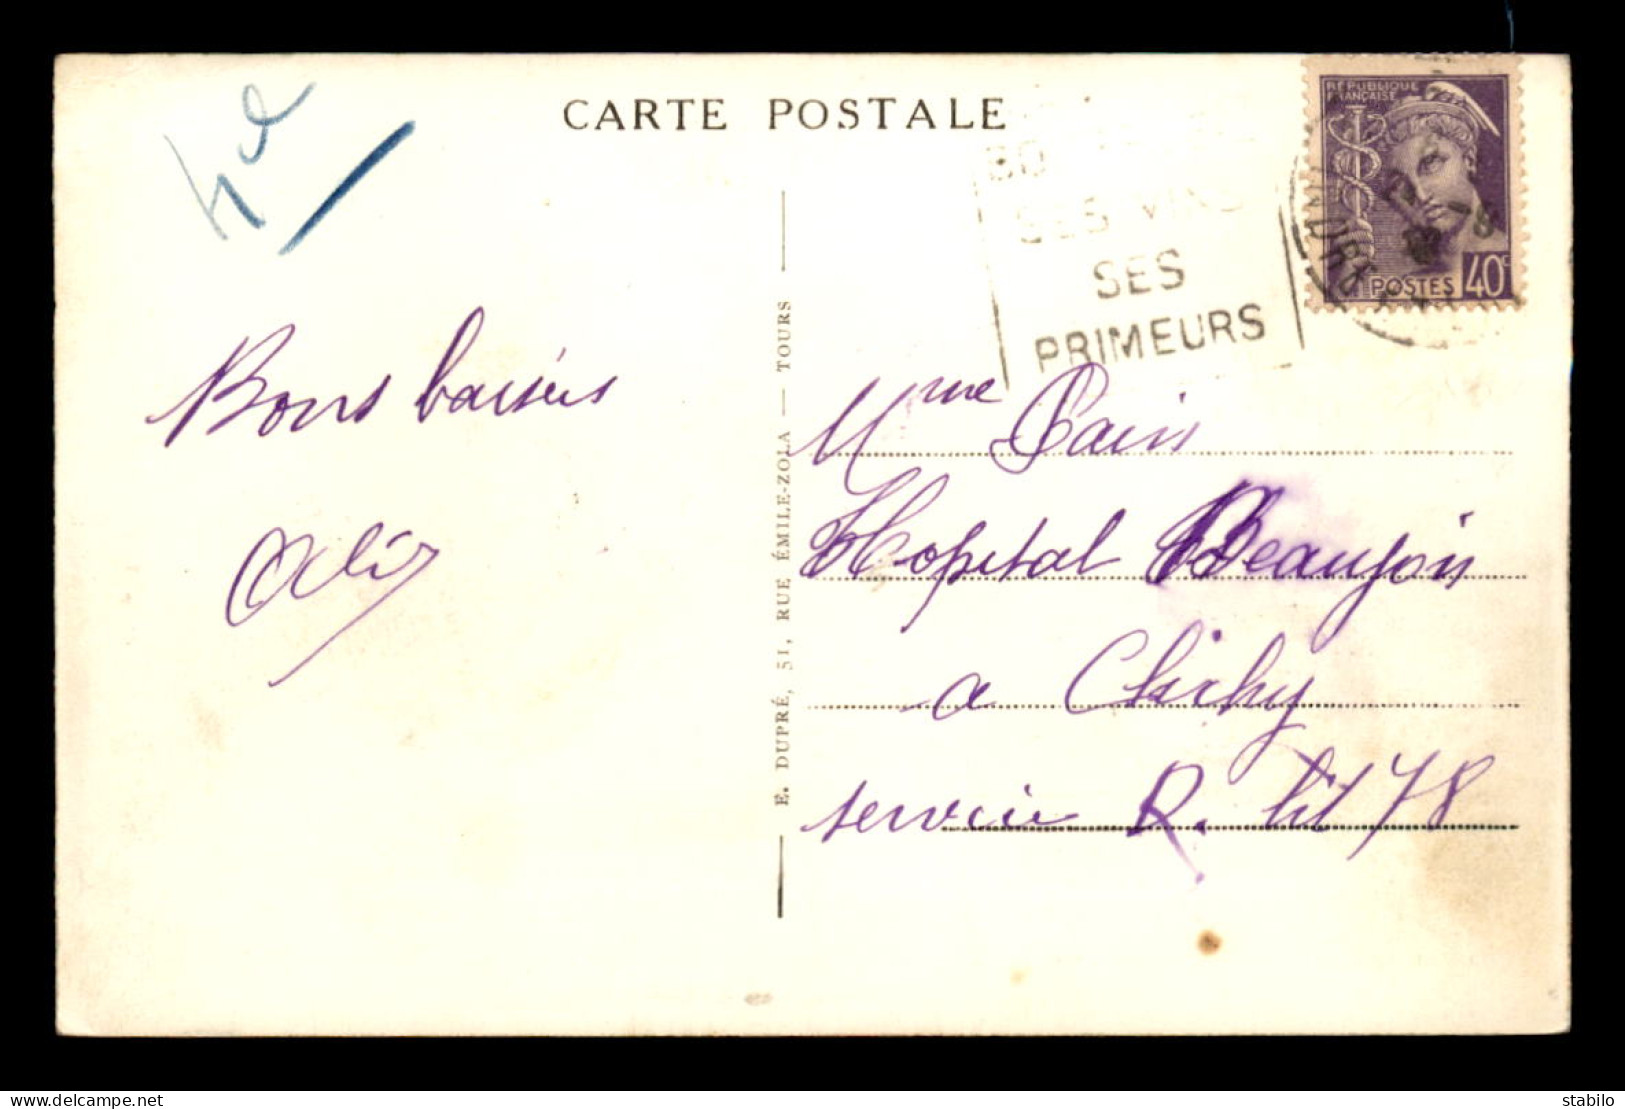 CARTE POSTALE
RÉPUBLIQUE
FRANÇAISE
POSTES 40c
SES
SES
PRIMEURS
Bons baisers
Mme Pain
Hopital Beaujon
a Clichy
service R. lit 78
E. DUPRÉ, 51, RUE ÉMILE-ZOLA — TOURS
delcampe.net
stabilo